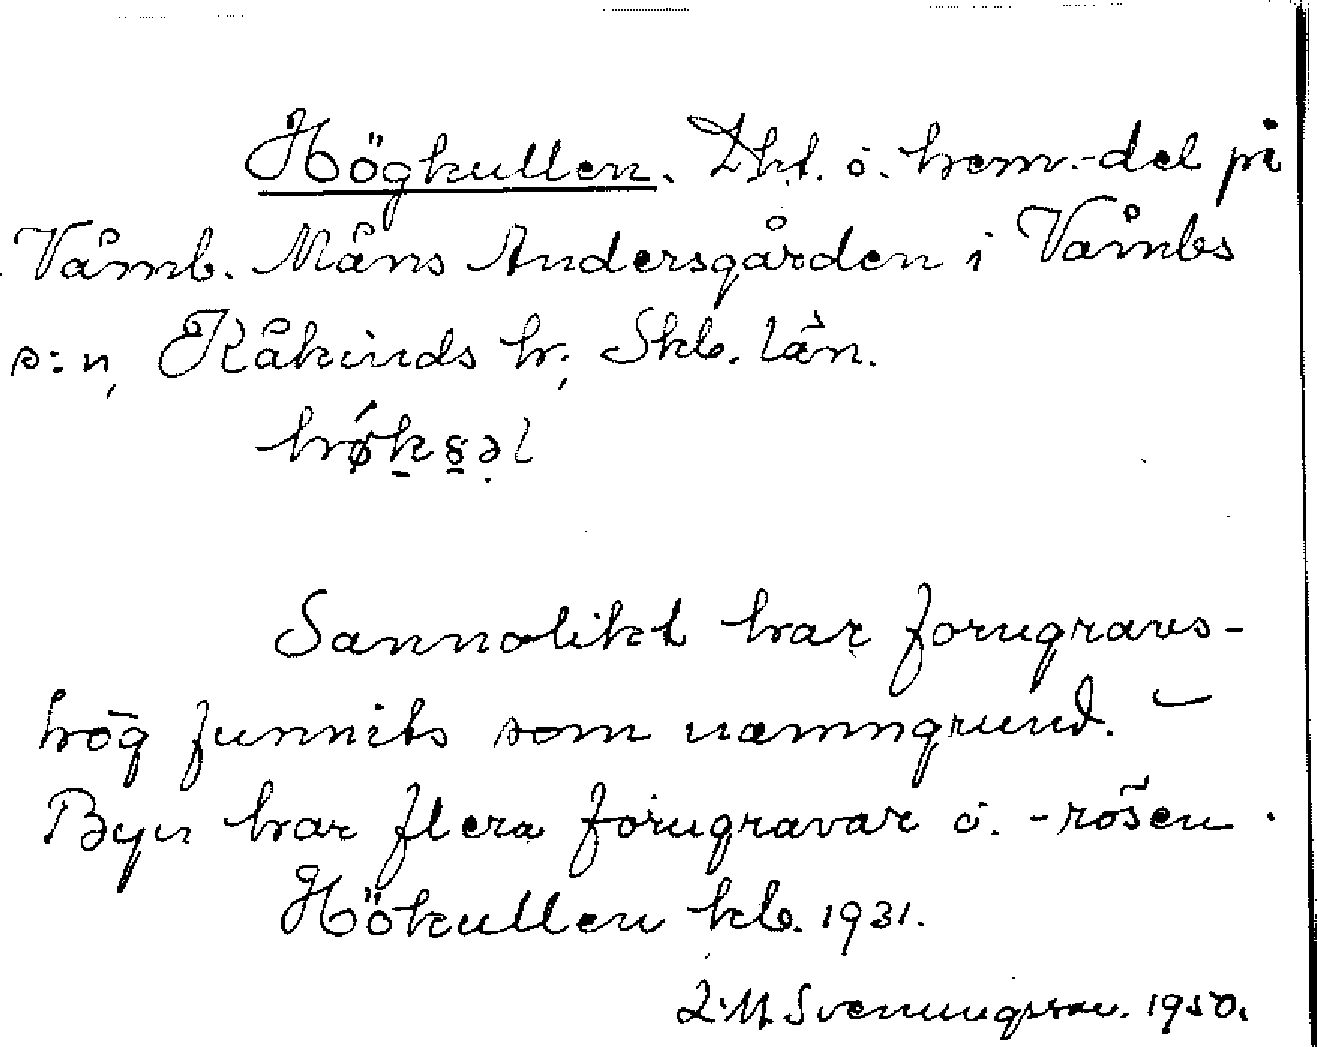 Högkullen. Lht. o. hem.-del på
Våmb. Måns Andersgården i Våmbs
s:n, Kåkinds hr, Skb. län.
Sannolikt har forngravs-
hög funnits som namngrund. –
Byn har flera forngravar o. -rösen.
Hökullen kb. 1931.
L.M. Svenungsson. 1950.